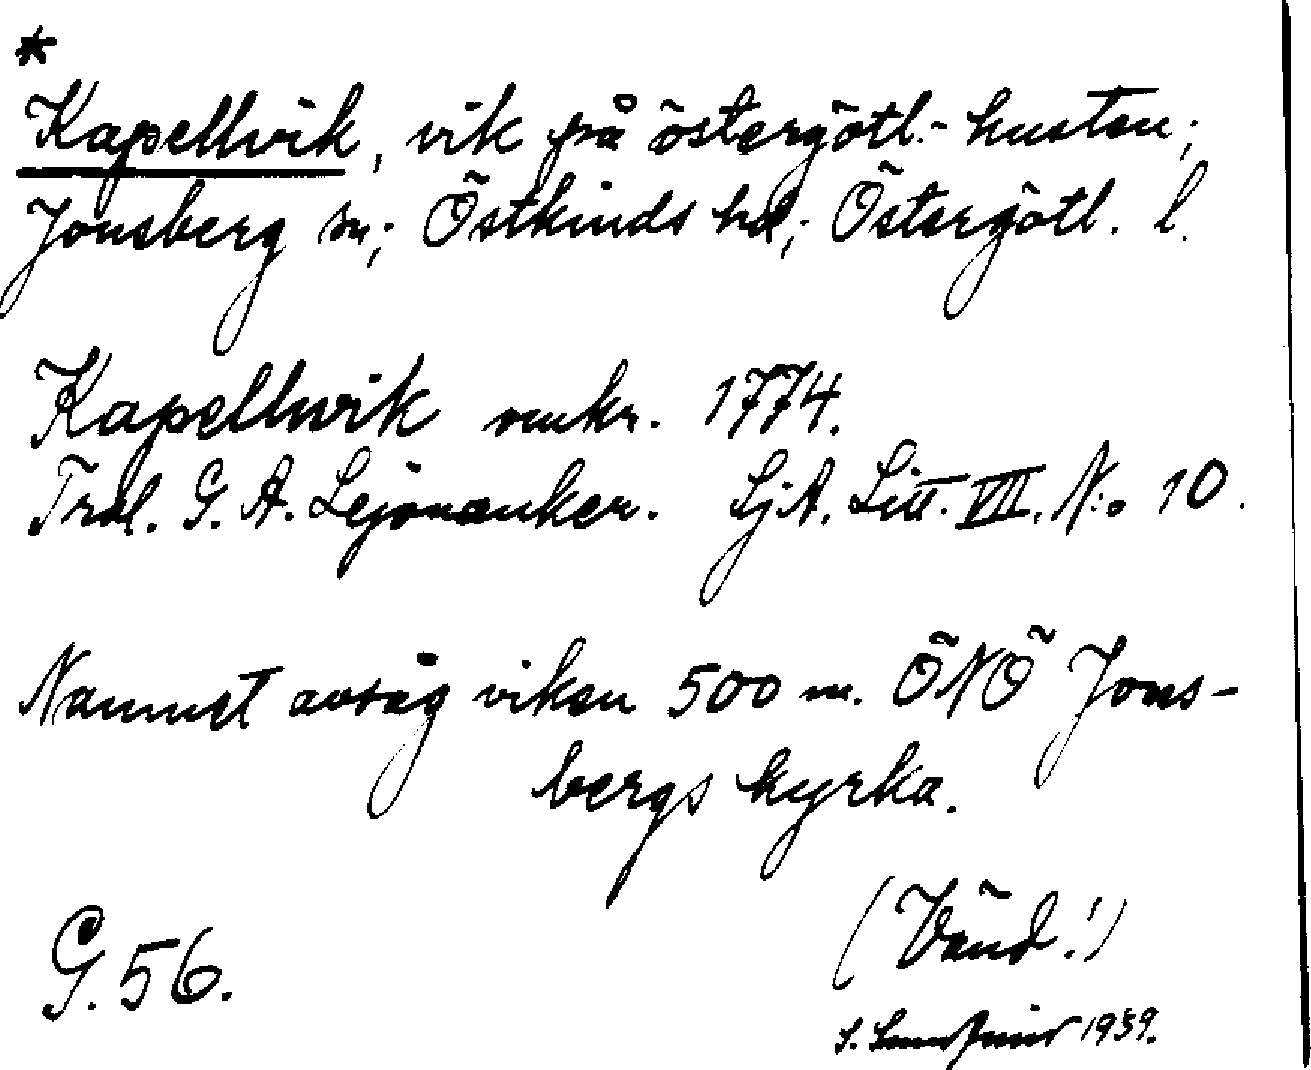 *
Kapellvik, vik på östergötl.-kusten;
Jonsberg sn; Östkinds hd; Östergötl. l.
Kapellwik omkr. 1774.
Trol. G. A. Lejonanker. SjA. Litt. VII. N:o 10.
Namnet avsåg viken 500 m. ÖNÖ Jons-
bergs kyrka.
(Vänd!)
G. 56.
S. 1939.